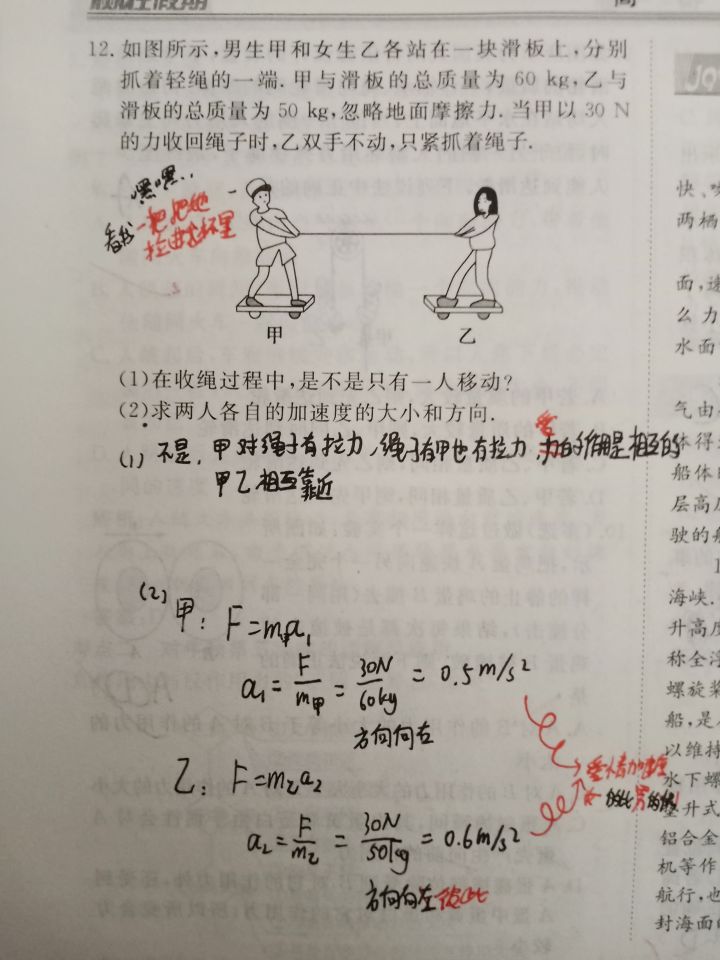 12. 如图所示,男生甲和女生乙各站在一块滑板上,分别
抓着轻绳的一端. 甲与滑板的总质量为 60 kg,乙与
滑板的总质量为 50 kg,忽略地面摩擦力. 当甲以 30 N
的力收回绳子时,乙双手不动,只紧抓着绳子.
嘿嘿..
看我一把把她
拉进怀里
甲 乙
(1)在收绳过程中,是不是只有一人移动?
(2)求两人各自的加速度的大小和方向.
(1) 不是, 甲对绳子有拉力, 绳子有甲也有拉力, 力的作用是相互的
甲乙相互靠近
(2) 甲: F=m甲a₁
a₁=F/m甲=30N/60kg=0.5m/s²
方向向右
乙: F=m乙a₂
a₂=F/m乙=30N/50kg=0.6m/s²
方向向左 彼此
快、
两栖
面,速
么力
水面
气由
体得
船体的
层高
驶的船
海峡.
升高度
称全浮
螺旋桨
船,是
以维持
水下螺
垫升式
铝合金
机等作
航行,也
封海面的